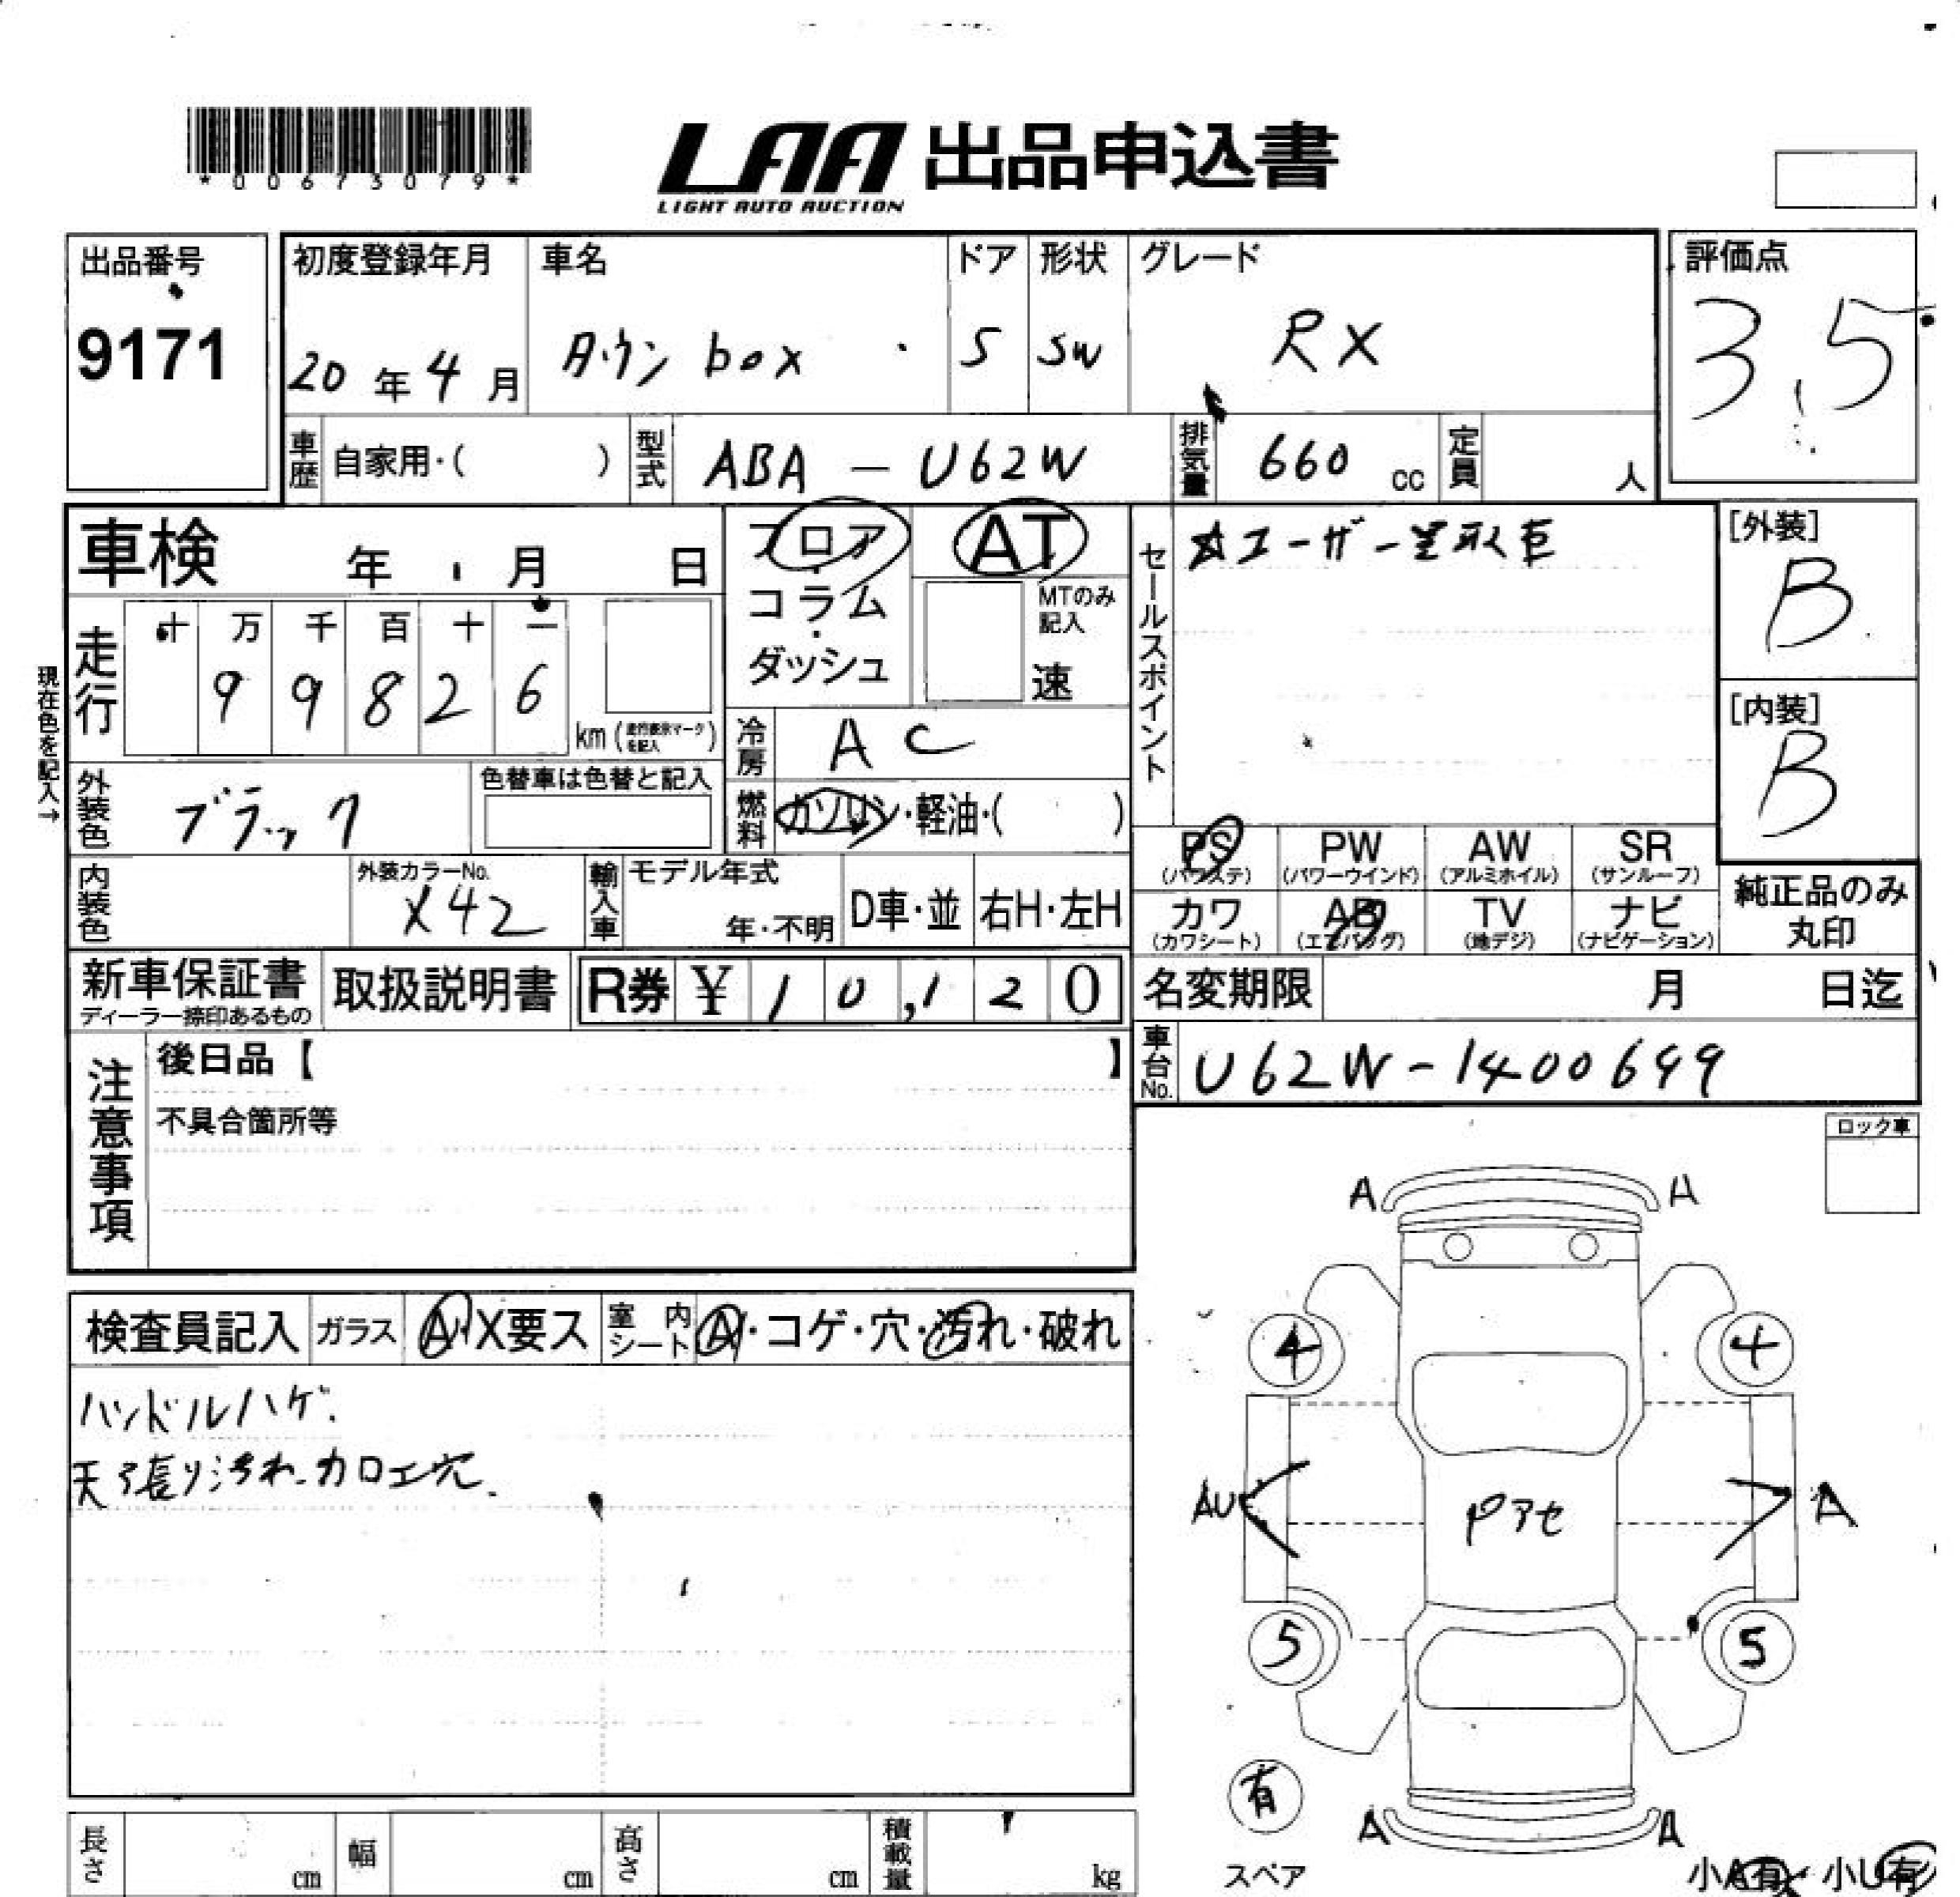 *00673079*
LAA 出品申込書
LIGHT AUTO AUCTION
出品番号
9171
初度登録年月
20年4月
車名
タウンbox
ドア
5
形状
SW
グレード
RX
評価点
3.5
車歴 自家用・( )
型式 ABA-U62W
排気量 660 cc
定員 人
車検 年 月 日
フロア・コラム・ダッシュ
AT
MTのみ記入
速
セールスポイント
☆ユーザー買取車
[外装]
B
[内装]
B
現在色を記入→
走行
十 万 千 百 十 一
9 9 8 2 6
km (走行表示マークを記入)
冷房 AC
燃料 ガソリン・軽油・( )
外装色 ブラック
色替車は色替と記入
内装色
外装カラーNo.
X42
輸入車
モデル年式
年・不明
D車・並
右H・左H
PS
(パワステ)
PW
(パワーウインド)
AW
(アルミホイル)
SR
(サンルーフ)
カワ
(カワシート)
AB
(エアバッグ)
TV
(地デジ)
ナビ
(ナビゲーション)
純正品のみ
丸印
新車保証書
ディーラー捺印あるもの
取扱説明書
R券 ¥ 10,120
名変期限 月 日迄
車台No. U62W-1400699
注意事項
後日品【 】
不具合箇所等
ロック車
検査員記入
ガラス A・X要ス
室内シート A・コゲ・穴・汚れ・破れ
ハンドルハゲ.
天張り汚れ.カロエ穴.
A A
4 4
AU Pアセ A
5 5
有
スペア
A A
小A有・小U有
長さ cm
幅 cm
高さ cm
積載量 kg